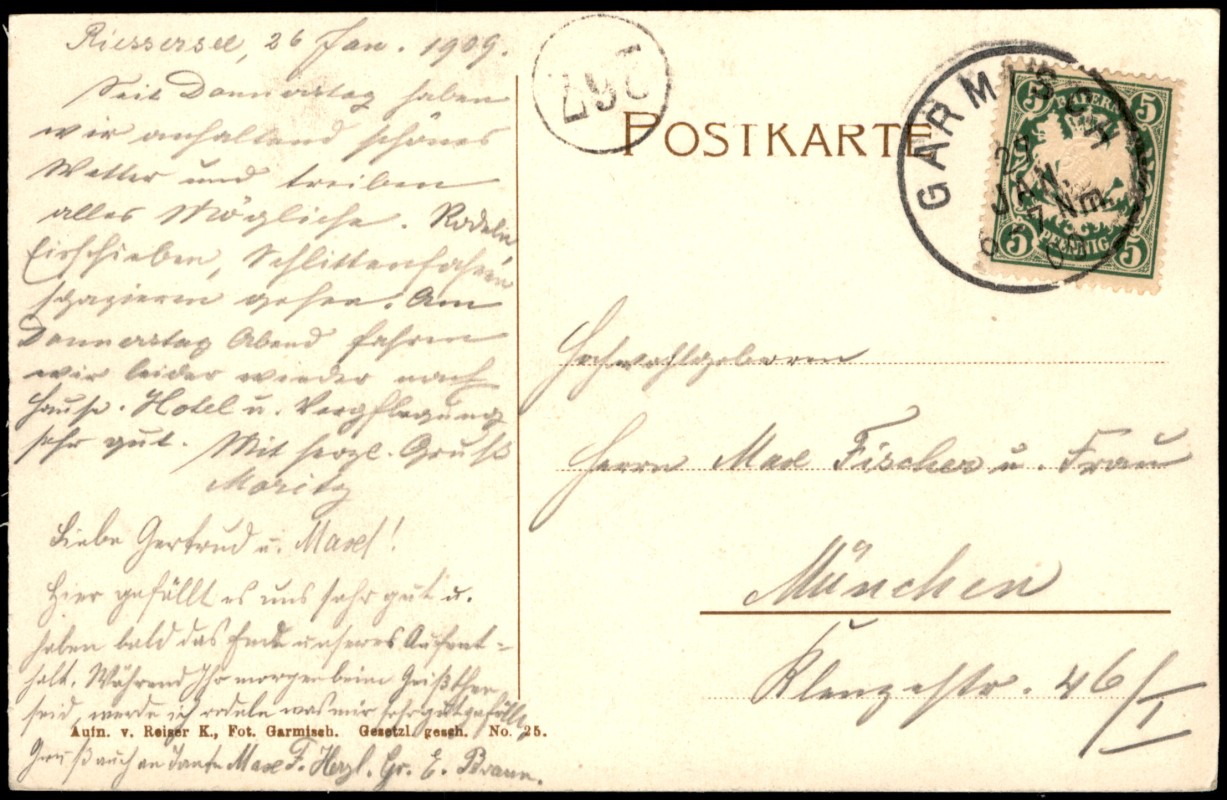 Riessersee, 26 Jan. 1909.
Seit Donnerstag haben
wir anhaltend schönes
Wetter und treiben
alles Mögliche. Rodeln
Eisschieben, Schlittenfahren
spazieren gehen. Am
Donnerstag Abend fahren
wir leider wieder nach
Hause. Hotel u. Verpflegung
sehr gut. Mit herzl. Gruß
Moritz
Liebe Gertrud u. Maxl!
Hier gefällt es uns sehr gut u.
haben bald das Ende unseres Aufent=
halt. Während Ihr morgen beim
seid, werde ich rodeln was mir sehr gut gefällt,
Aufn. v. Reiser K., Fot. Garmisch. Gesetzl. gesch. No. 25.
Gruß auch an Tante Max F. Herzl. Gr. E. Braun.
267
POSTKARTE
GARMISCH
JAN.
7 Nm
BAYERN
5 5
5 5
PFENNIG
Hochwohlgeboren
Herrn Max Fischer u. Frau
München
Klenzestr. 46/I